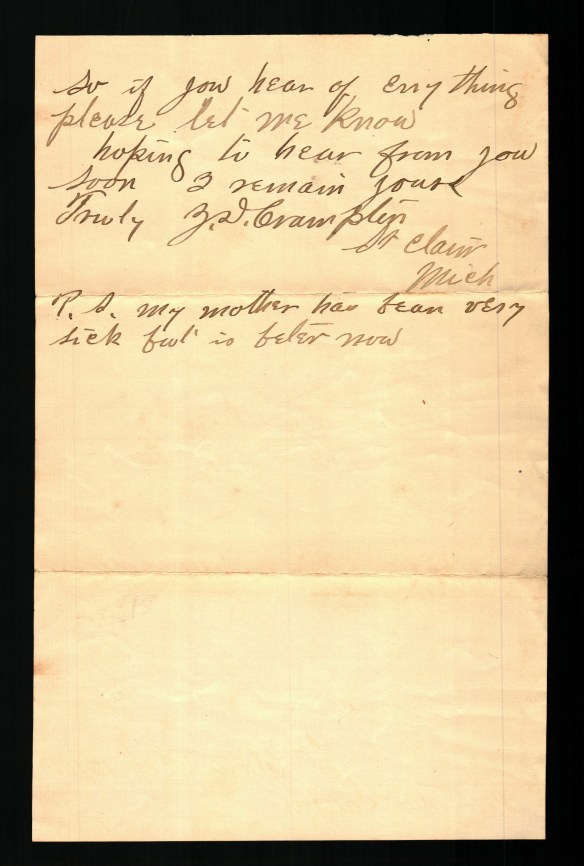 so if you hear of eny thing
please let me know
hoping to hear from you
soon I remain yours
Truly Z. D. Cramptin
St Clair
Mich
P. S. my mother has bean very
sick but is beter now